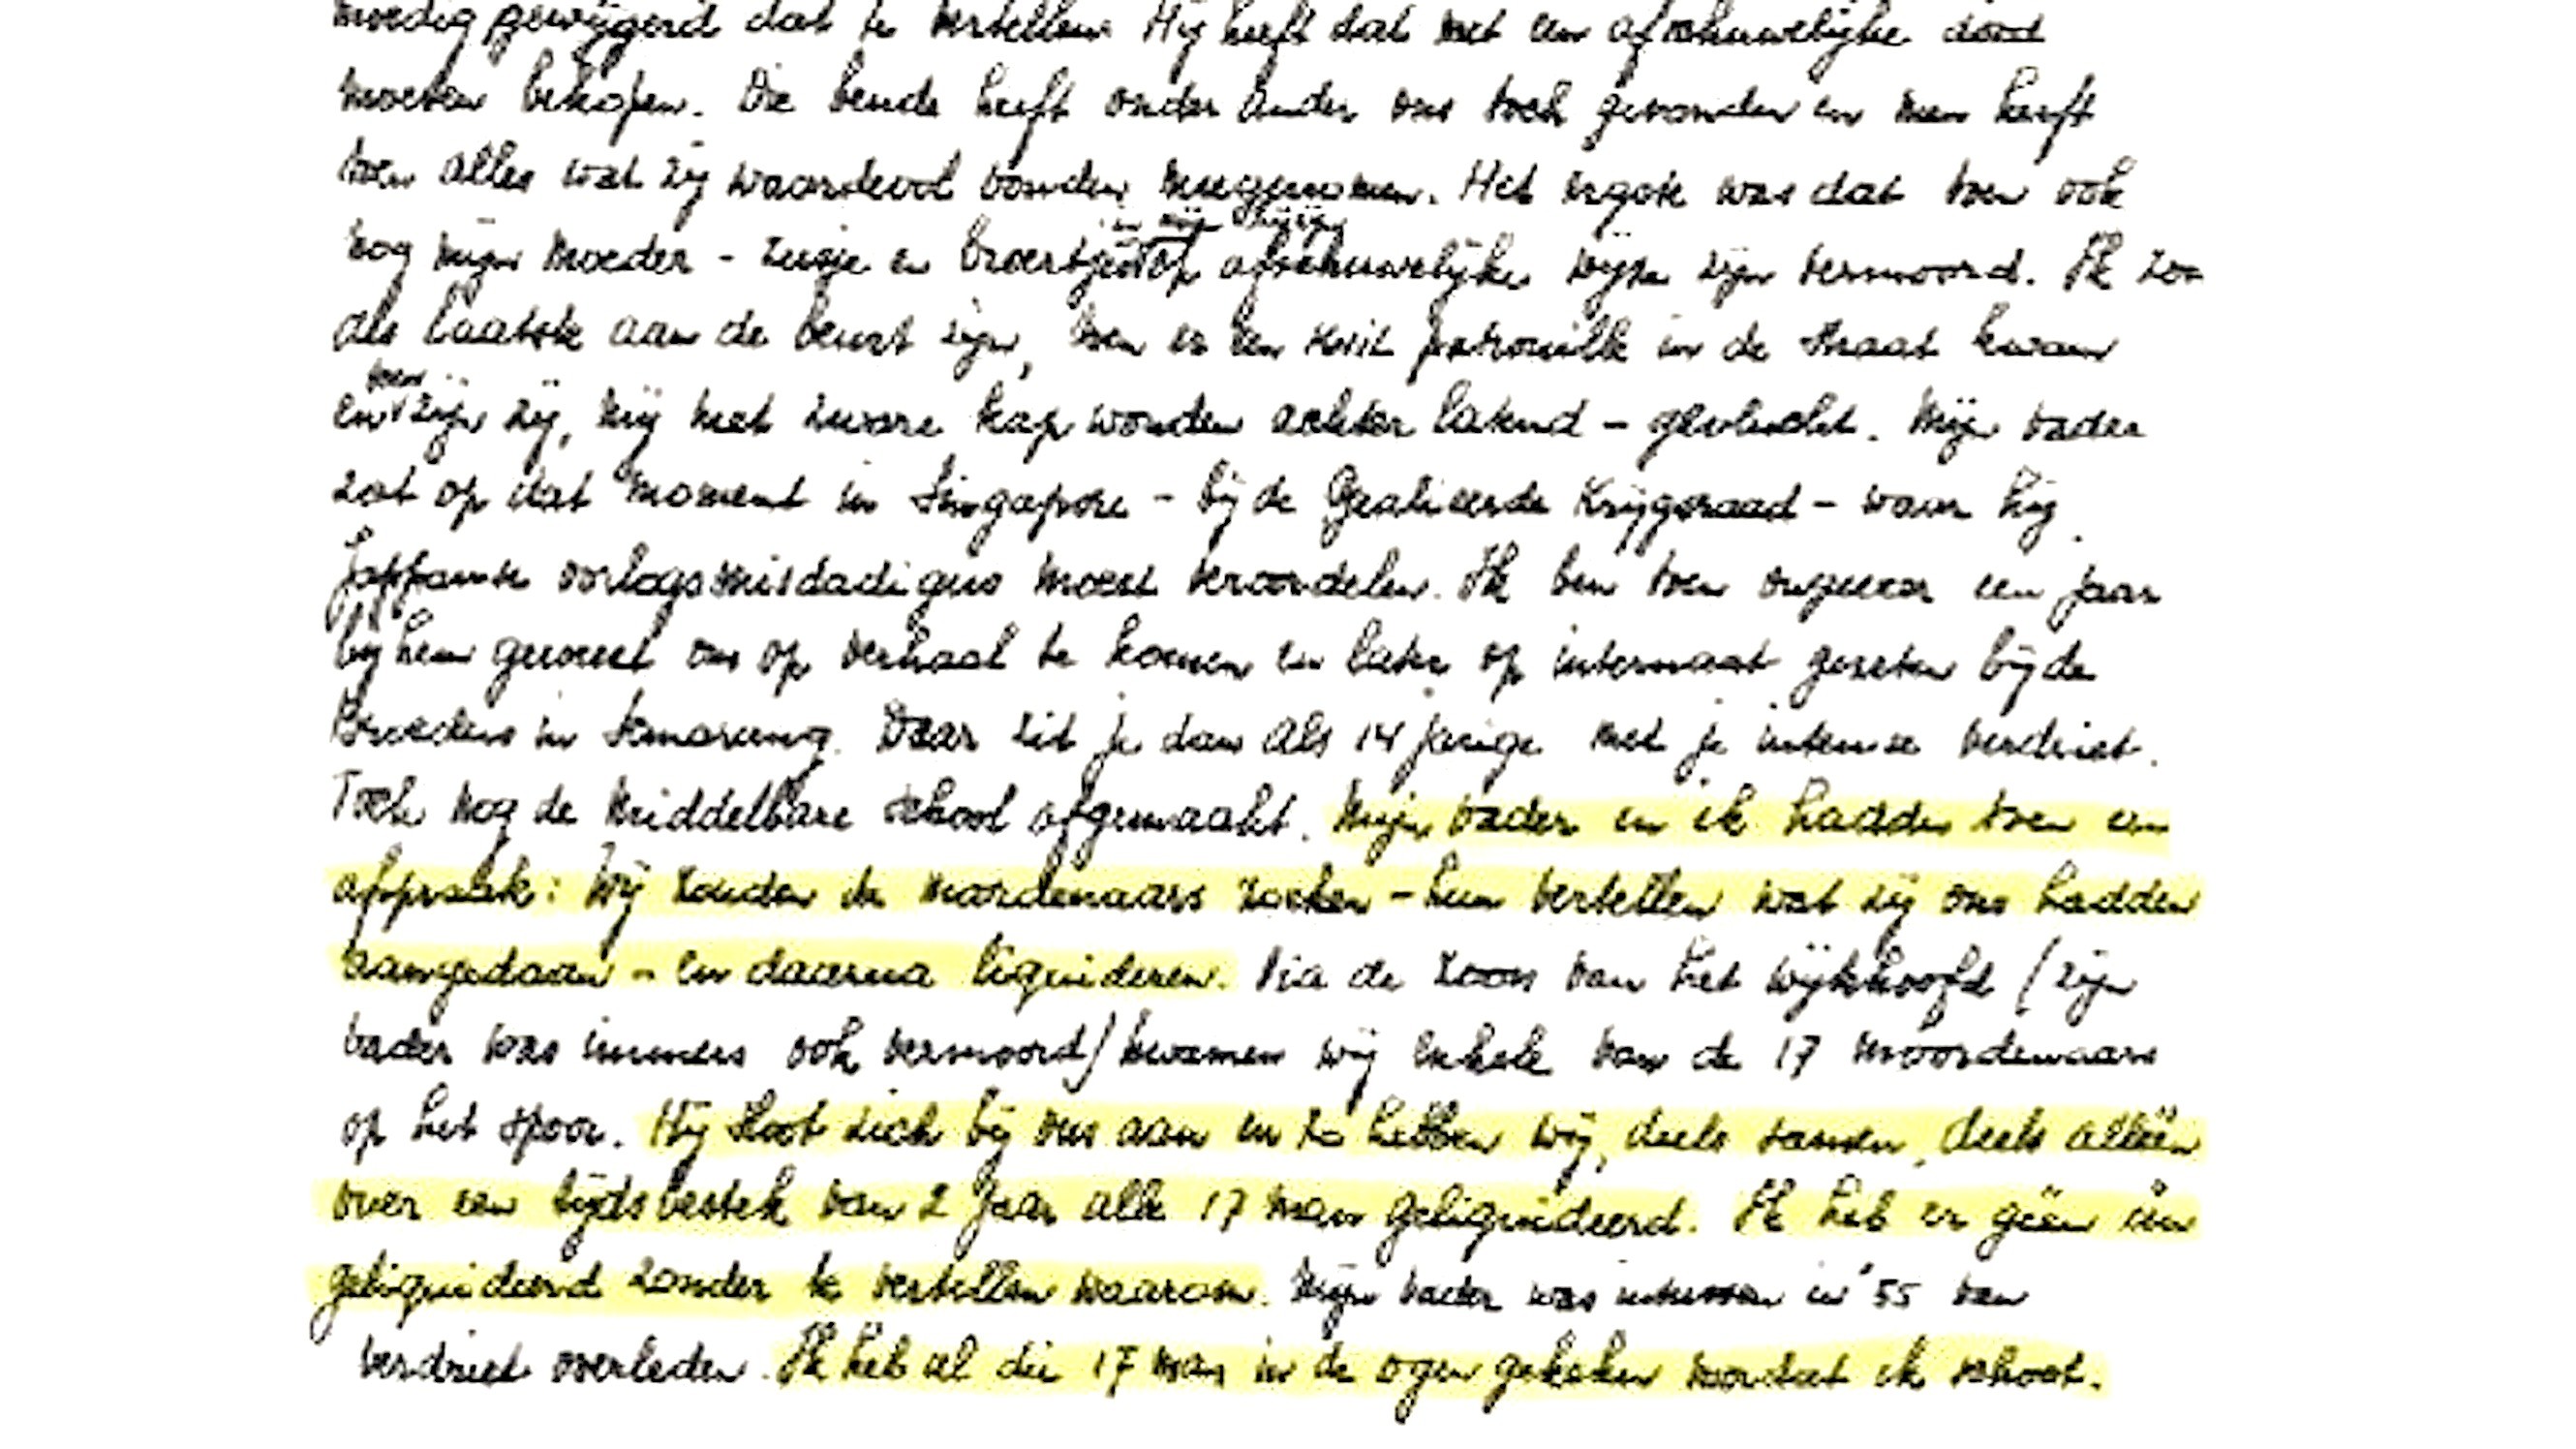 moedig geweigerd dat te vertellen. Hij heeft dat met een afschuwelijke dood
moeten bekopen. Die bende heeft onder ander ons toch gevonden en men heeft
toen alles wat zij waardevol vonden meegenomen. Het ergste was dat toen ook
nog mijn moeder - zusje en broertje op afschuwelijke wijze zijn vermoord. Ik zou
als laatste aan de beurt zijn, toen er een patrouille in de straat kwam
toen
en zijn zij, mij met zware kap wonden achter latend - gevlucht. Mijn vader
zat op dat moment in Singapore - bij de Geallieerde Krijgsraad - waar hij
Jappanse oorlogsmisdadigers moest veroordelen. Ik ben toen ongeveer een jaar
bij hem geweest om op verhaal te komen en later op internaat gezeten bij de
Broeders in Semarang. Daar zit je dan als 14 jarige met je intense verdriet.
Toch nog de middelbare school afgemaakt. Mijn vader en ik hadden toen een
afspraak: Wij zouden de moordenaars zoeken - hun vertellen wat zij ons hadden
aangedaan - en daarna liquideren. Via de zoon van het wijkhoofd (zijn
vader was immers ook vermoord) kwamen wij enkele van de 17 moordenaars
op het spoor. Hij sloot zich bij ons aan en zo hebben wij, deels samen, deels alléén
over een tijdsbestek van 2 jaar alle 17 man geliquideerd. Ik heb er géén één
geliquideerd zonder te vertellen waarom. Mijn vader was intussen in '55 van
verdriet overleden. Ik heb al die 17 man in de ogen gekeken voordat ik schoot.